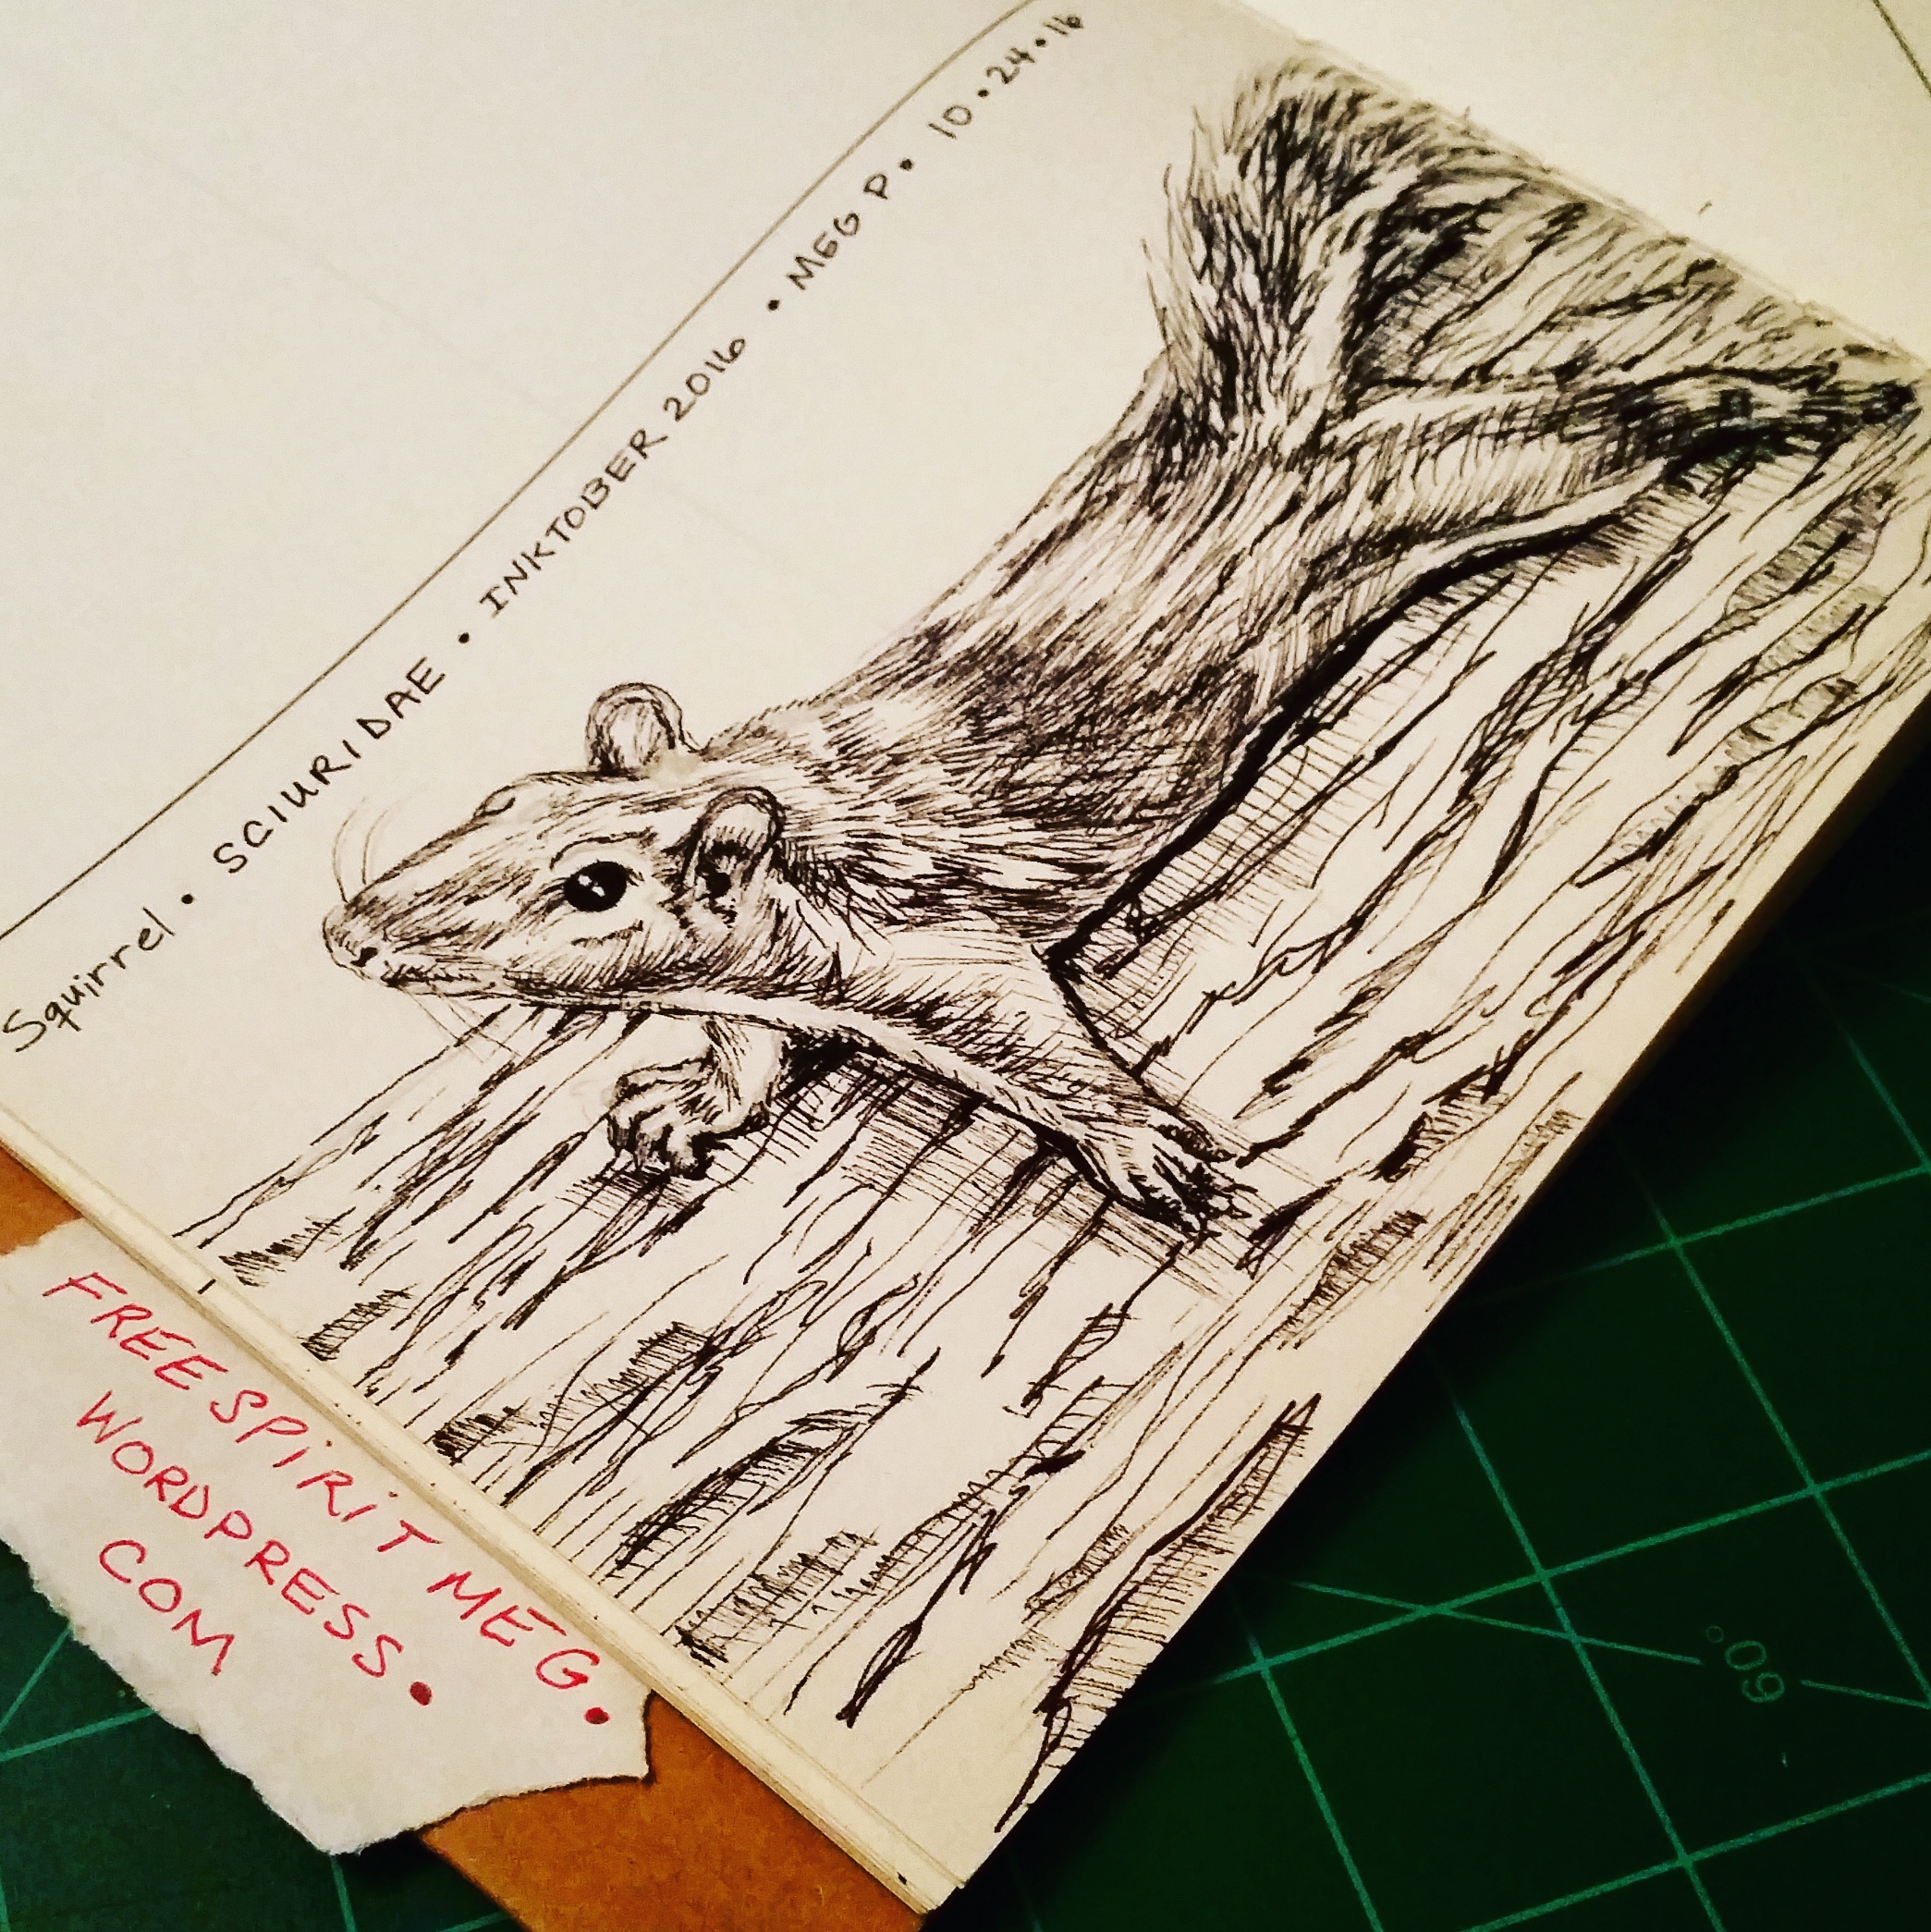 Squirrel • SCIURIDAE • INKTOBER 2016 • MEG P • 10•24•16
FREESPIRITMEG.
WORDPRESS.
COM
60°